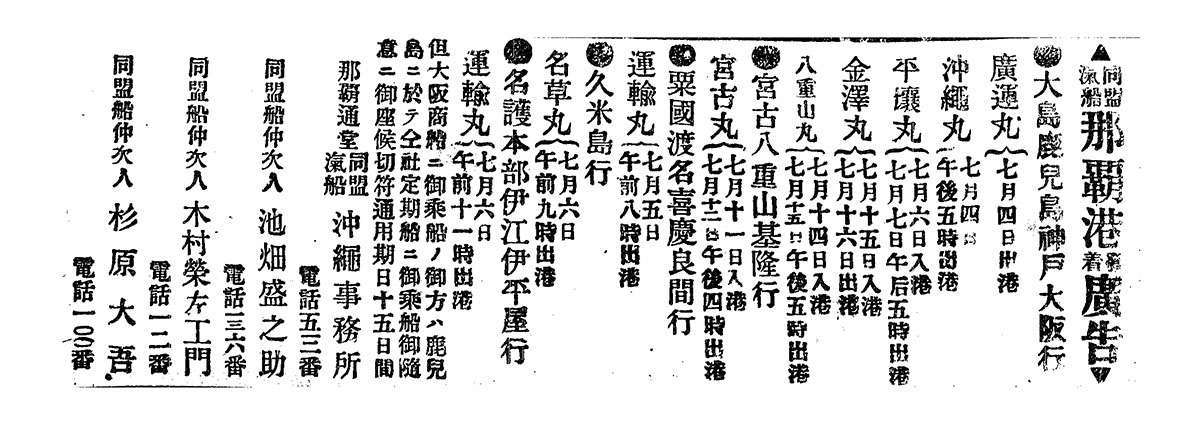 同盟滊船那覇港發着廣告
大島鹿兒島神戸大阪行
廣運丸 七月四日出港
沖繩丸 七月四日午後五時出港
平壤丸 七月六日入港 七月七日午后五時出港
金澤丸 七月十五日入港 七月十六日出港
八重山丸 七月十四日入港 七月十五日午後五時出港
宮古八重山基隆行
宮古丸 七月十一日入港 七月十二日午後四時出港
粟國渡名喜慶良間行
運輸丸 七月五日午前八時出港
久米島行
名草丸 七月六日午前九時出港
名護本部伊江伊平屋行
運輸丸 七月六日午前十一時出港
但大阪商船ニ御乘船ノ御方ハ鹿兒
島ニ於テ仝社定期船ニ御乘船御隨
意ニ御座候切符通用期日十五日間
那覇通堂 同盟滊船 沖繩事務所
電話五三番
同盟船仲次人 池畑盛之助
電話一三六番
同盟船仲次人 木村榮左工門
電話一二番
同盟船仲次人 杉原大吾
電話一〇〇番